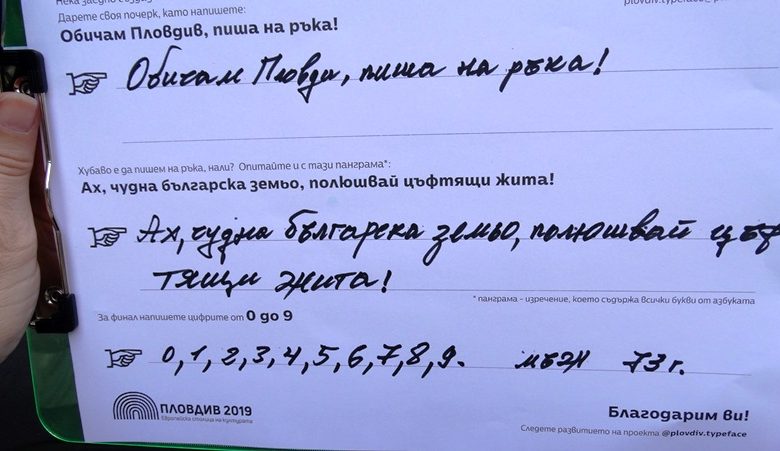 Дарете своя почерк, като напишете:
Обичам Пловдив, пиша на ръка!
Обичам Пловди, пиша на ръка!
Хубаво е да пишем на ръка, нали? Опитайте и с тази панграма*:
Ах, чудна българска земьо, полюшвай цъфтящи жита!
Ах, чудна българска земьо, полюшвай цъф
тящи жита!
* панграма - изречение, което съдържа всички букви от азбуката
За финал напишете цифрите от 0 до 9
0, 1, 2, 3, 4, 5, 6, 7, 8, 9. мъж 73 г.
ПЛОВДИВ 2019
Европейска столица на културата
Благодарим ви!
Следете развитието на проекта @plovdiv.typeface